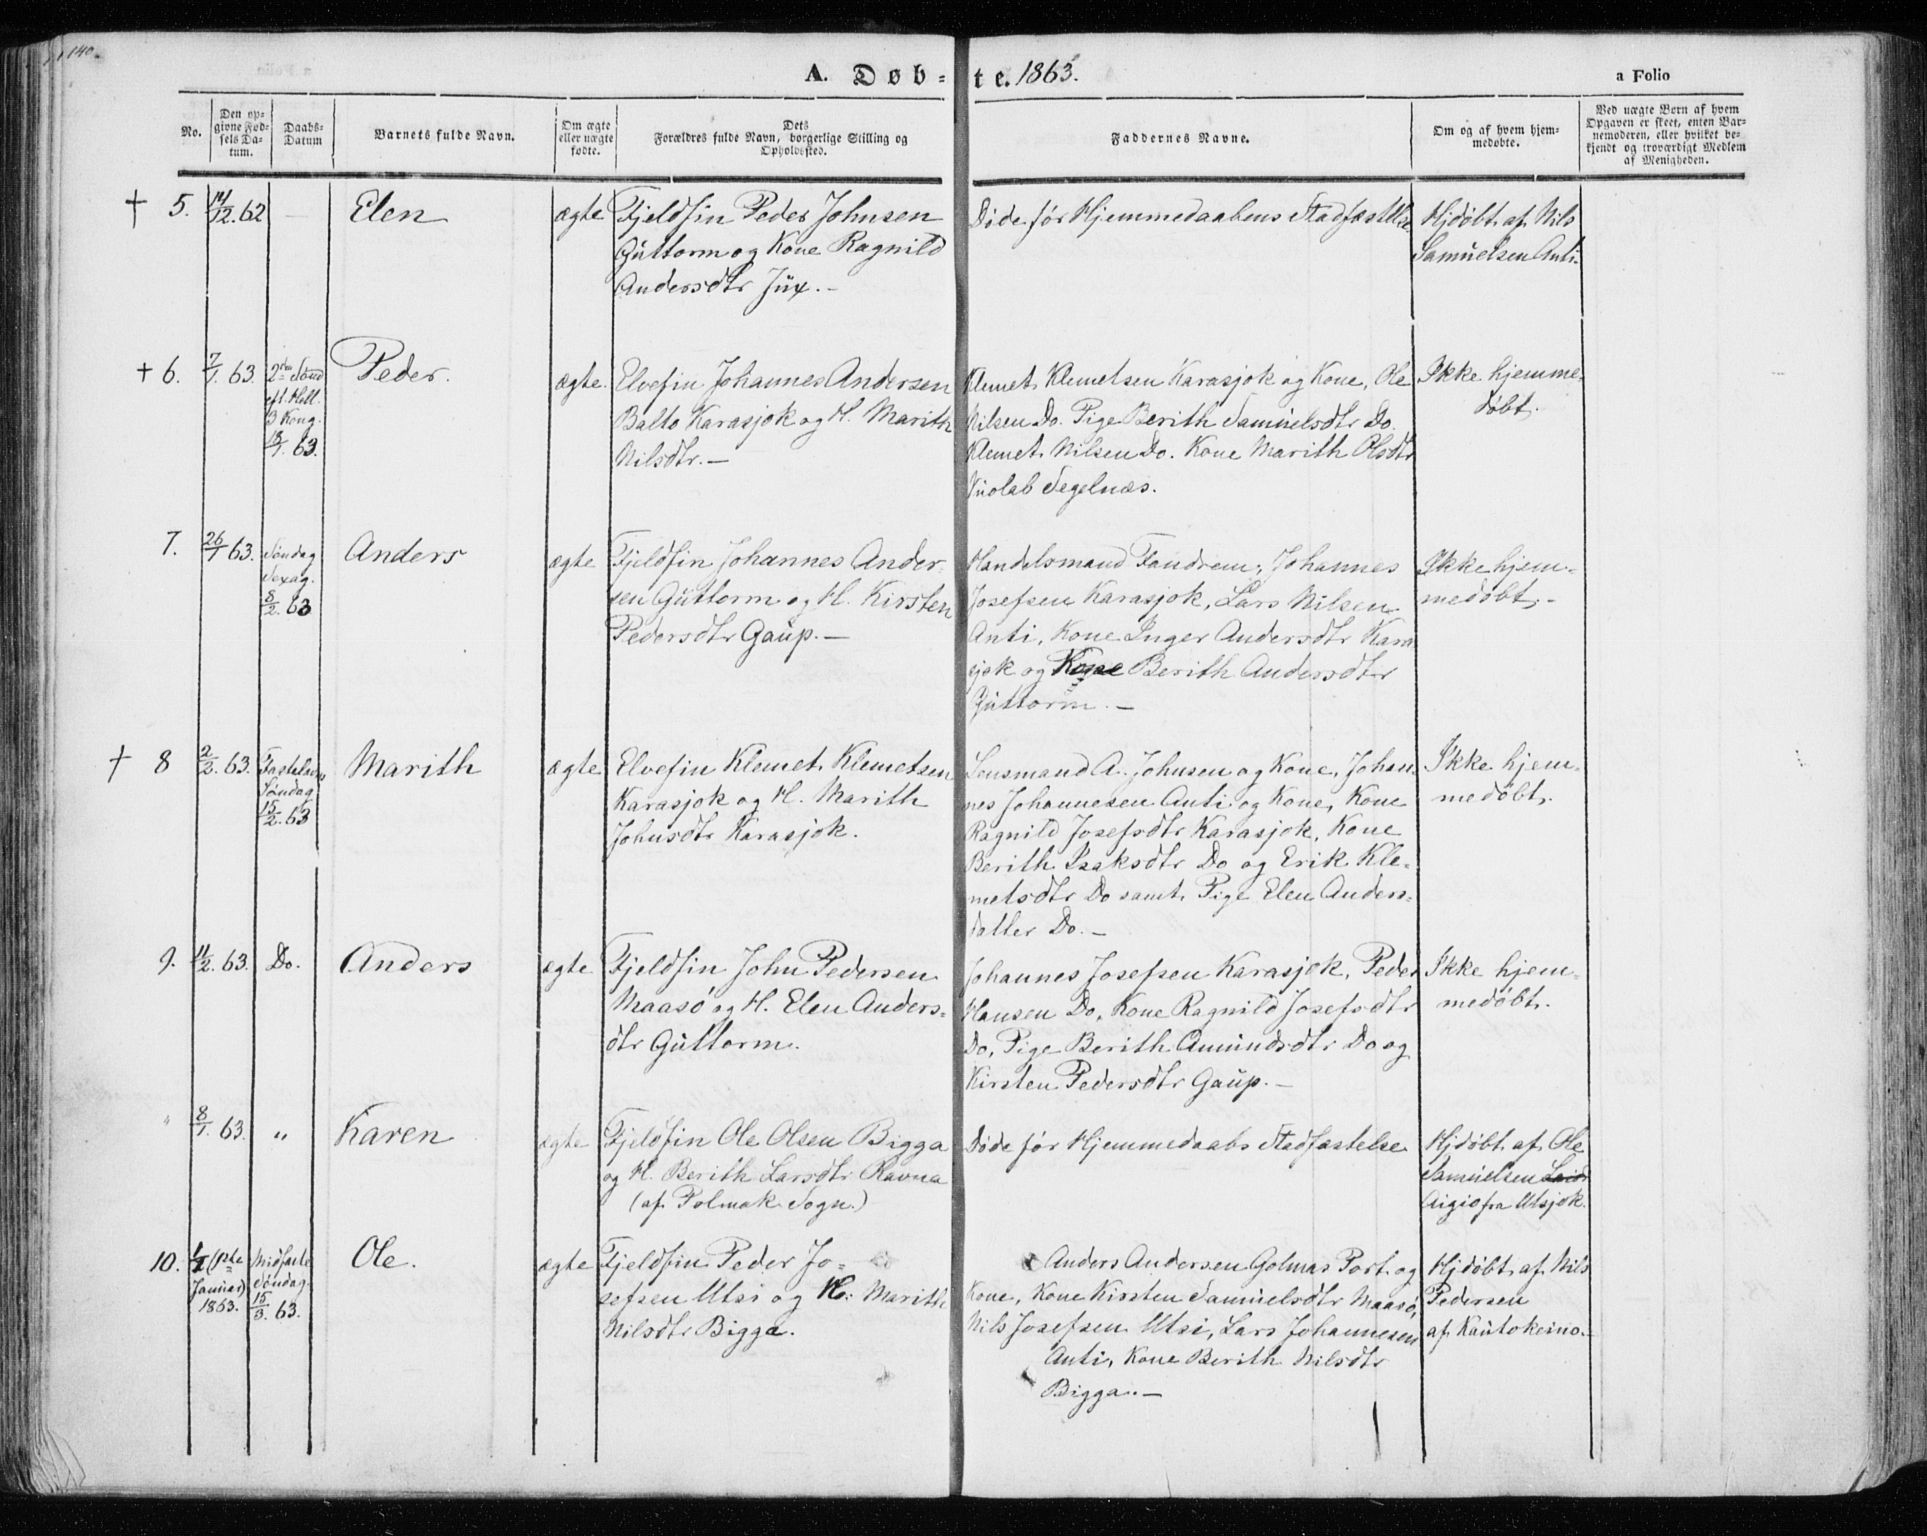 140.
A. Døbte. 1863.
a Folio
No.
Den op-
givne Fød-
sels Da-
tum.
Daabs-
Datum
Barnets fulde Navn.
Om ægte
eller uægte
fødte.
Dets
Forældres fulde Navn, borgerlige Stilling og
Opholdssted.
Faddernes Navne.
Om og af hvem hjem-
medøbte.
Ved uægte Børn af hvem
Opgaven er skeet, enten Bar-
nemoderen, eller hvilket be-
kjendt og troværdigt Medlem
af Menigheden.
† 5.
11/12. 62
Elen
ægte
Fjeldfin Peder Johnsen
Guttorm og Kone Ragnild
Andersdtr Jüx. –
Døde før Hjemmedaabens Stadfæstelse
Hjdøbt af Nils
Samuelsen Anti.
† 6.
7/1. 63.
2den Sønd
eft. Hell.
3 Kong.
18/1. 63.
Peder.
ægte.
Elvefin Johannes Andersen
Balto Karasjok og H. Marith
Nilsdtr. –
Klemet Klemetsen Karasjok og Kone, Ole
Nilsen Do. Pige Berith Samuelsdtr Do.
Klemet Nilsen Do. Kone Marith Olsdtr
Vuolab Segelnæs.
Ikke hjemme-
døbt.
7.
26/1 63.
Søndag
Sexag.
8/2. 63
Anders
ægte
Fjeldfin Johannes Ander-
sen Guttorm og H. Kirsten
Pedersdtr Gaup. –
Handelsmand Fandrem, Johannes
Josefsen Karasjok, Lars Nilsen
Anti, Kone Inger Andersdtr Kara
sjok og Kone Berith Andersdtr
Guttorm. –
Ikke hjem-
medøbt. –
† 8
2/2. 63.
Fastelavns
Søndag
15/2. 63
Marith
ægte
Elvefin Klemet Klemetsen
Karasjok og H. Marith
Johnsdtr Karasjok.
Lensmand A. Johnsen og Kone, Johan-
nes Johannesen Anti og Kone, Kone
Ragnild Josefsdtr Karasjok, Kone
Berith Isaksdtr Do og Erik Kle-
metsdtr Do samt Pige Elen Anders-
datter Do. –
Ikke hjem-
medøbt.
9.
11/2. 63.
Do.
Anders
ægte
Fjeldfin John Pedersen
Maasø og H. Elen Anders-
dtr Guttorm.
Johannes Josefsen Karasjok, Peder
Hansen Do, Kone Ragnild Josefsdtr
Do, Pige Berith Amundsdtr Do og
Kirsten Pedersdtr Gaup. –
Ikke hjem-
medøbt.
"
8/1. 63.
"
Karen
ægte
Fjeldfin Ole Olsen Bigga
og H. Berith Larsdtr Ravna
(af Polmak Sogn.)
Døde før Hjemmedaabs Stadfæstelse
Hjdøbt af Ole
Samuelsen
Aigio fra Utsjok.
10.
1/1 (1ste
Januar)
1863.
Midfaste
Søndag
15/3. 63.
Ole.
ægte
Fjeldfin Peder Jo-
sefsen Utsi og H: Marith
Nilsdtr Bigga.
Anders Andersen Golmas Port og
Kone, Kone Kirsten Samuelsdtr Maasø,
Nils Josefsen Utsi, Lars Johannesen
Anti, Kone Berith Nilsdtr
Bigga. –
Hjdøbt af Nils
Pedersen
af Kautokeino.